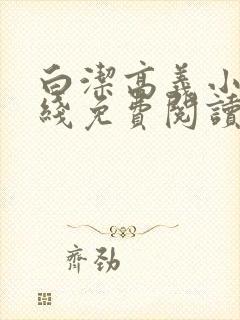 白潔高義小
綫免費閱讀
齊勁